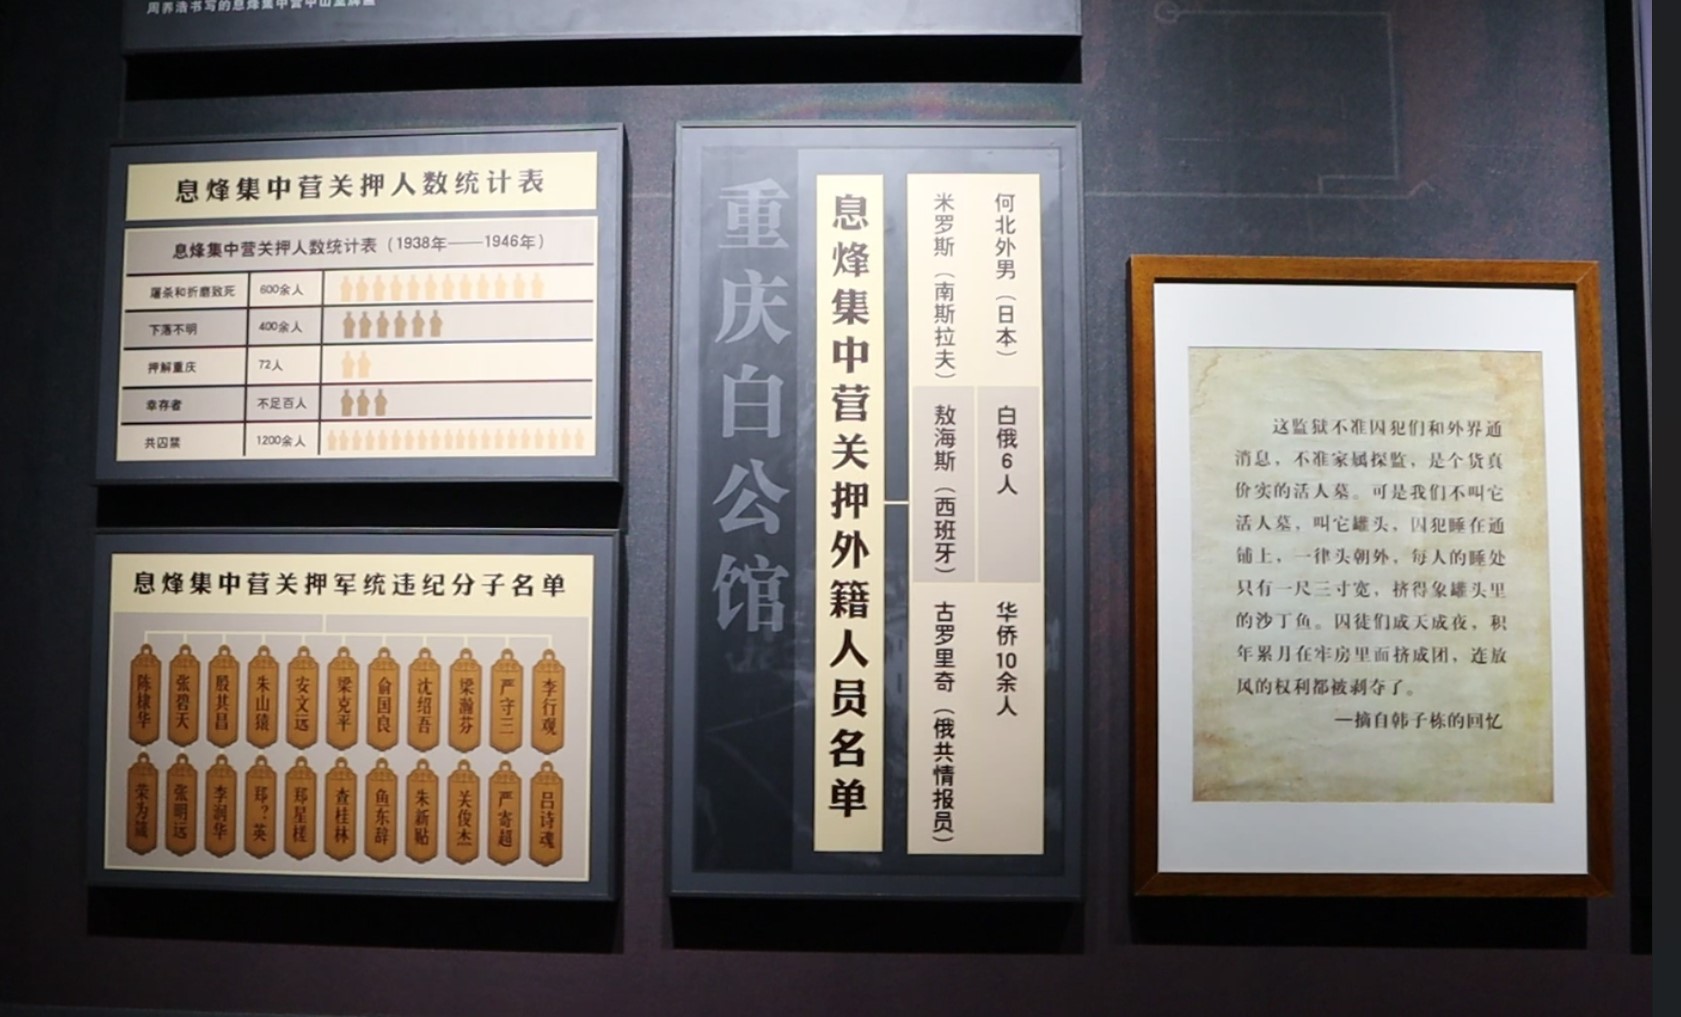 周养浩书写的息烽集中营中山室牌匾
息烽集中营关押人数统计表
息烽集中营关押人数统计表（1938年——1946年）
屠杀和折磨致死 600余人
下落不明 400余人
押解重庆 72人
幸存者 不足百人
共囚禁 1200余人
息烽集中营关押军统违纪分子名单
陈棣华
张碧天
殷其昌
朱山猿
安文远
梁克平
俞国良
沈绍吾
梁瀚芬
严守三
李行观
荣为箴
张明远
李润华
郑？英
郑星槎
查桂林
鱼东辞
朱新贴
关俊杰
严寄超
吕诗魂
重庆白公馆
息烽集中营关押外籍人员名单
何北外男（日本）
白俄6人
华侨10余人
米罗斯（南斯拉夫）
敖海斯（西班牙）
古罗里奇（俄共情报员）
这监狱不准囚犯们和外界通
消息，不准家属探监，是个货真
价实的活人墓。可是我们不叫它
活人墓，叫它罐头，囚犯睡在通
铺上，一律头朝外，每人的睡处
只有一尺三寸宽，挤得象罐头里
的沙丁鱼。囚徒们成天成夜，积
年累月在牢房里面挤成团，连放
风的权利都被剥夺了。
—摘自韩子栋的回忆